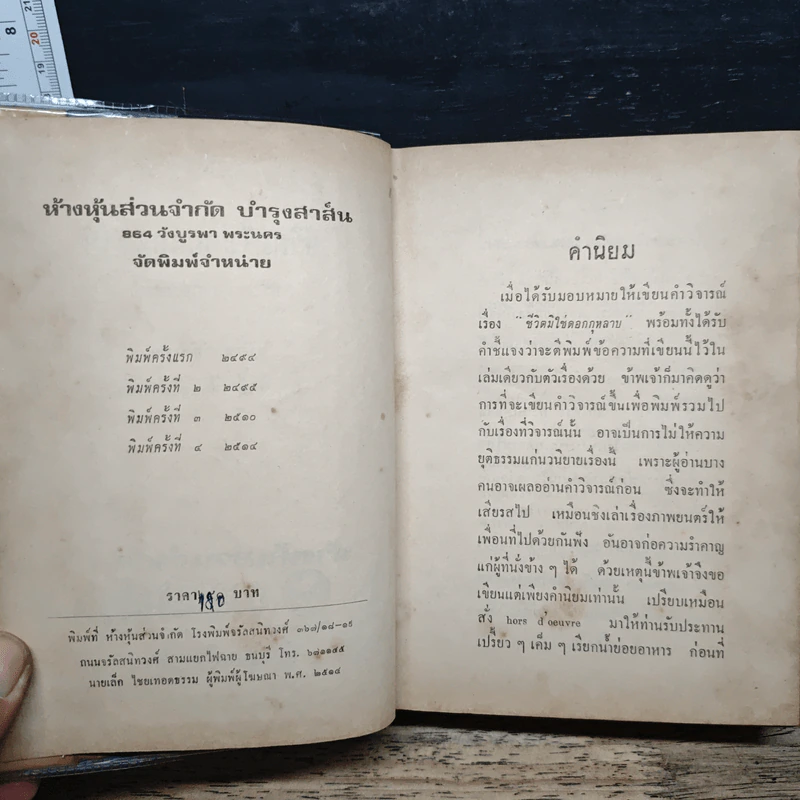 ห้างหุ้นส่วนจำกัด บำรุงสาส์น
864 วังบูรพา พระนคร
จัดพิมพ์จำหน่าย
พิมพ์ครั้งแรก ๒๔๙๔
พิมพ์ครั้งที่ ๒ ๒๔๙๕
พิมพ์ครั้งที่ ๓ ๒๕๑๐
พิมพ์ครั้งที่ ๔ ๒๕๑๔
ราคา บาท
พิมพ์ที่ ห้างหุ้นส่วนจำกัด โรงพิมพ์จรัลสนิทวงศ์ ๓๖๗/๑๘-๑๙
ถนนจรัลสนิทวงศ์ สามแยกไฟฉาย ธนบุรี โทร. ๖๘๑๑๔๕
นายเล็ก ไชยเทอดธรรม ผู้พิมพ์ผู้โฆษณา พ.ศ. ๒๕๑๔
คำนิยม
เมื่อได้รับมอบหมายให้เขียนคำวิจารณ์
เรื่อง "ชีวิตมิใช่ดอกกุหลาบ" พร้อมทั้งได้รับ
คำชี้แจงว่าจะตีพิมพ์ข้อความที่เขียนนี้ไว้ใน
เล่มเดียวกับตัวเรื่องด้วย ข้าพเจ้าก็มาคิดดูว่า
การที่จะเขียนคำวิจารณ์ขึ้นเพื่อพิมพ์รวมไป
กับเรื่องที่วิจารณ์นั้น อาจเป็นการไม่ให้ความ
ยุติธรรมแก่นวนิยายเรื่องนี้ เพราะผู้อ่านบาง
คนอาจเผลออ่านคำวิจารณ์ก่อน ซึ่งจะทำให้
เสียรสไป เหมือนชิงเล่าเรื่องภาพยนตร์ให้
เพื่อนที่ไปด้วยกันฟัง อันอาจก่อความรำคาญ
แก่ผู้ที่นั่งข้าง ๆ ได้ ด้วยเหตุนี้ข้าพเจ้าจึงขอ
เขียนแต่เพียงคำนิยมเท่านั้น เปรียบเหมือน
สั่ง hors d'oeuvre มาให้ท่านรับประทาน
เปรี้ยว ๆ เค็ม ๆ เรียกน้ำย่อยอาหาร ก่อนที่